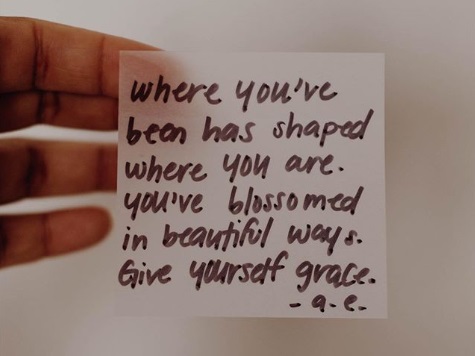 where you've
been has shaped
where you are.
you've blossomed
in beautiful ways.
Give yourself grace.
- a.e.-